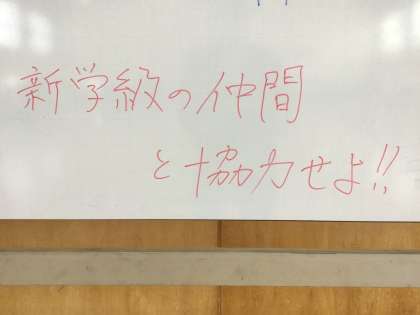 新学級の仲間
と協力せよ!!